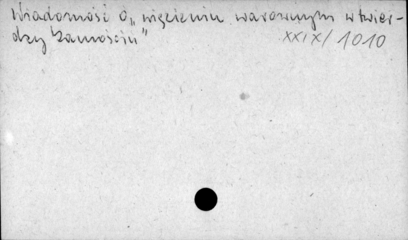 Wiadomość o „więzieniu warownym w twier-
dzy Zamościu”
XXIX/1010